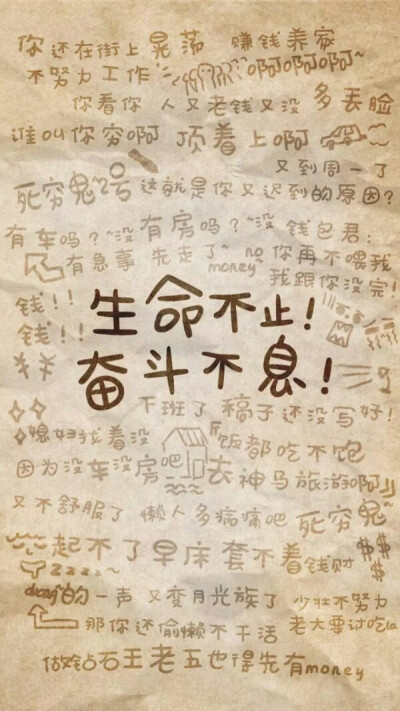 你还在街上晃荡 赚钱养家
不努力工作 啊啊啊啊~
你看你 人又老钱又没 多丢脸
谁叫你穷啊 顶着上啊
又到周一了
死穷鬼2号 这就是你又迟到的原因?
有车吗?~没有房吗?~没 钱包君:
有急事 先走了~ no money 你再不喂我
我跟你没完!
钱!!
钱!!
生命不止!
奋斗不息!
下班了 稿子还没写好!
媳妇找着没 饭都吃不饱
因为没车没房吧 去神马旅游啊
又不舒服了 懒人多病痛吧 死穷鬼~
起不了早床 套不着钱财 $$$
zzzz~
duang的一声 又变月光族了 少壮不努力
那你还偷懒不干活 老大要讨吃
做钻石王老五也得先有money